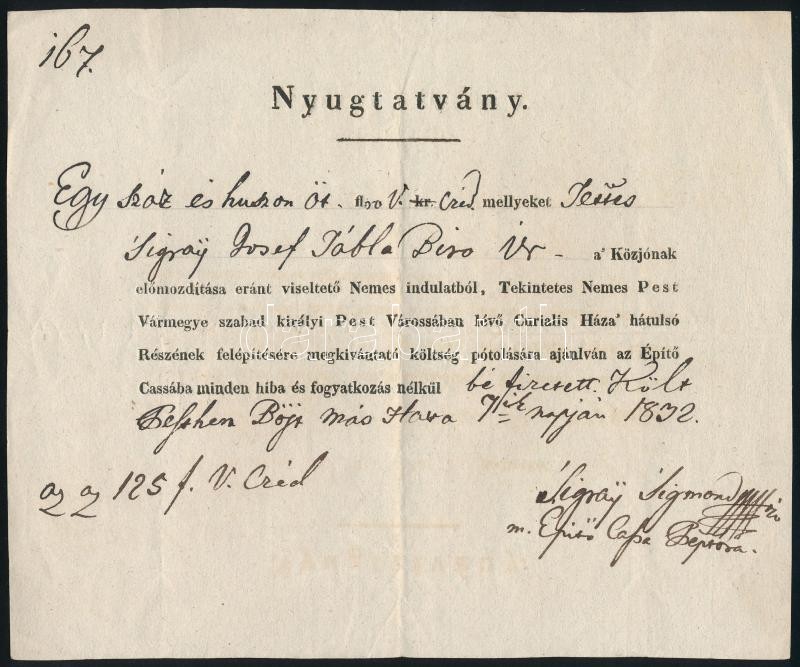 167.
Nyugtatvány.
Egy száz és huszon öt. flro V. kr. Czéd. mellyeket Tettes
Sigraÿ Josef Tábla Biro Úr – a' Közjónak
előmozdítása eránt viseltető Nemes indulatból, Tekintetes Nemes Pest
Vármegye szabad királyi Pest Városában lévő Curialis Háza' hátulsó
Részének felépítésére megkivántató költség pótolására ajánlván az Építő
Cassába minden hiba és fogyatkozás nélkűl bé fizetett. Költ
Pesthen Böjt más Hava 7ik napján 1832.
az az 125 f. V. Czéd
Sigraÿ Sigmond
m. Epitő Cassa
darabanth